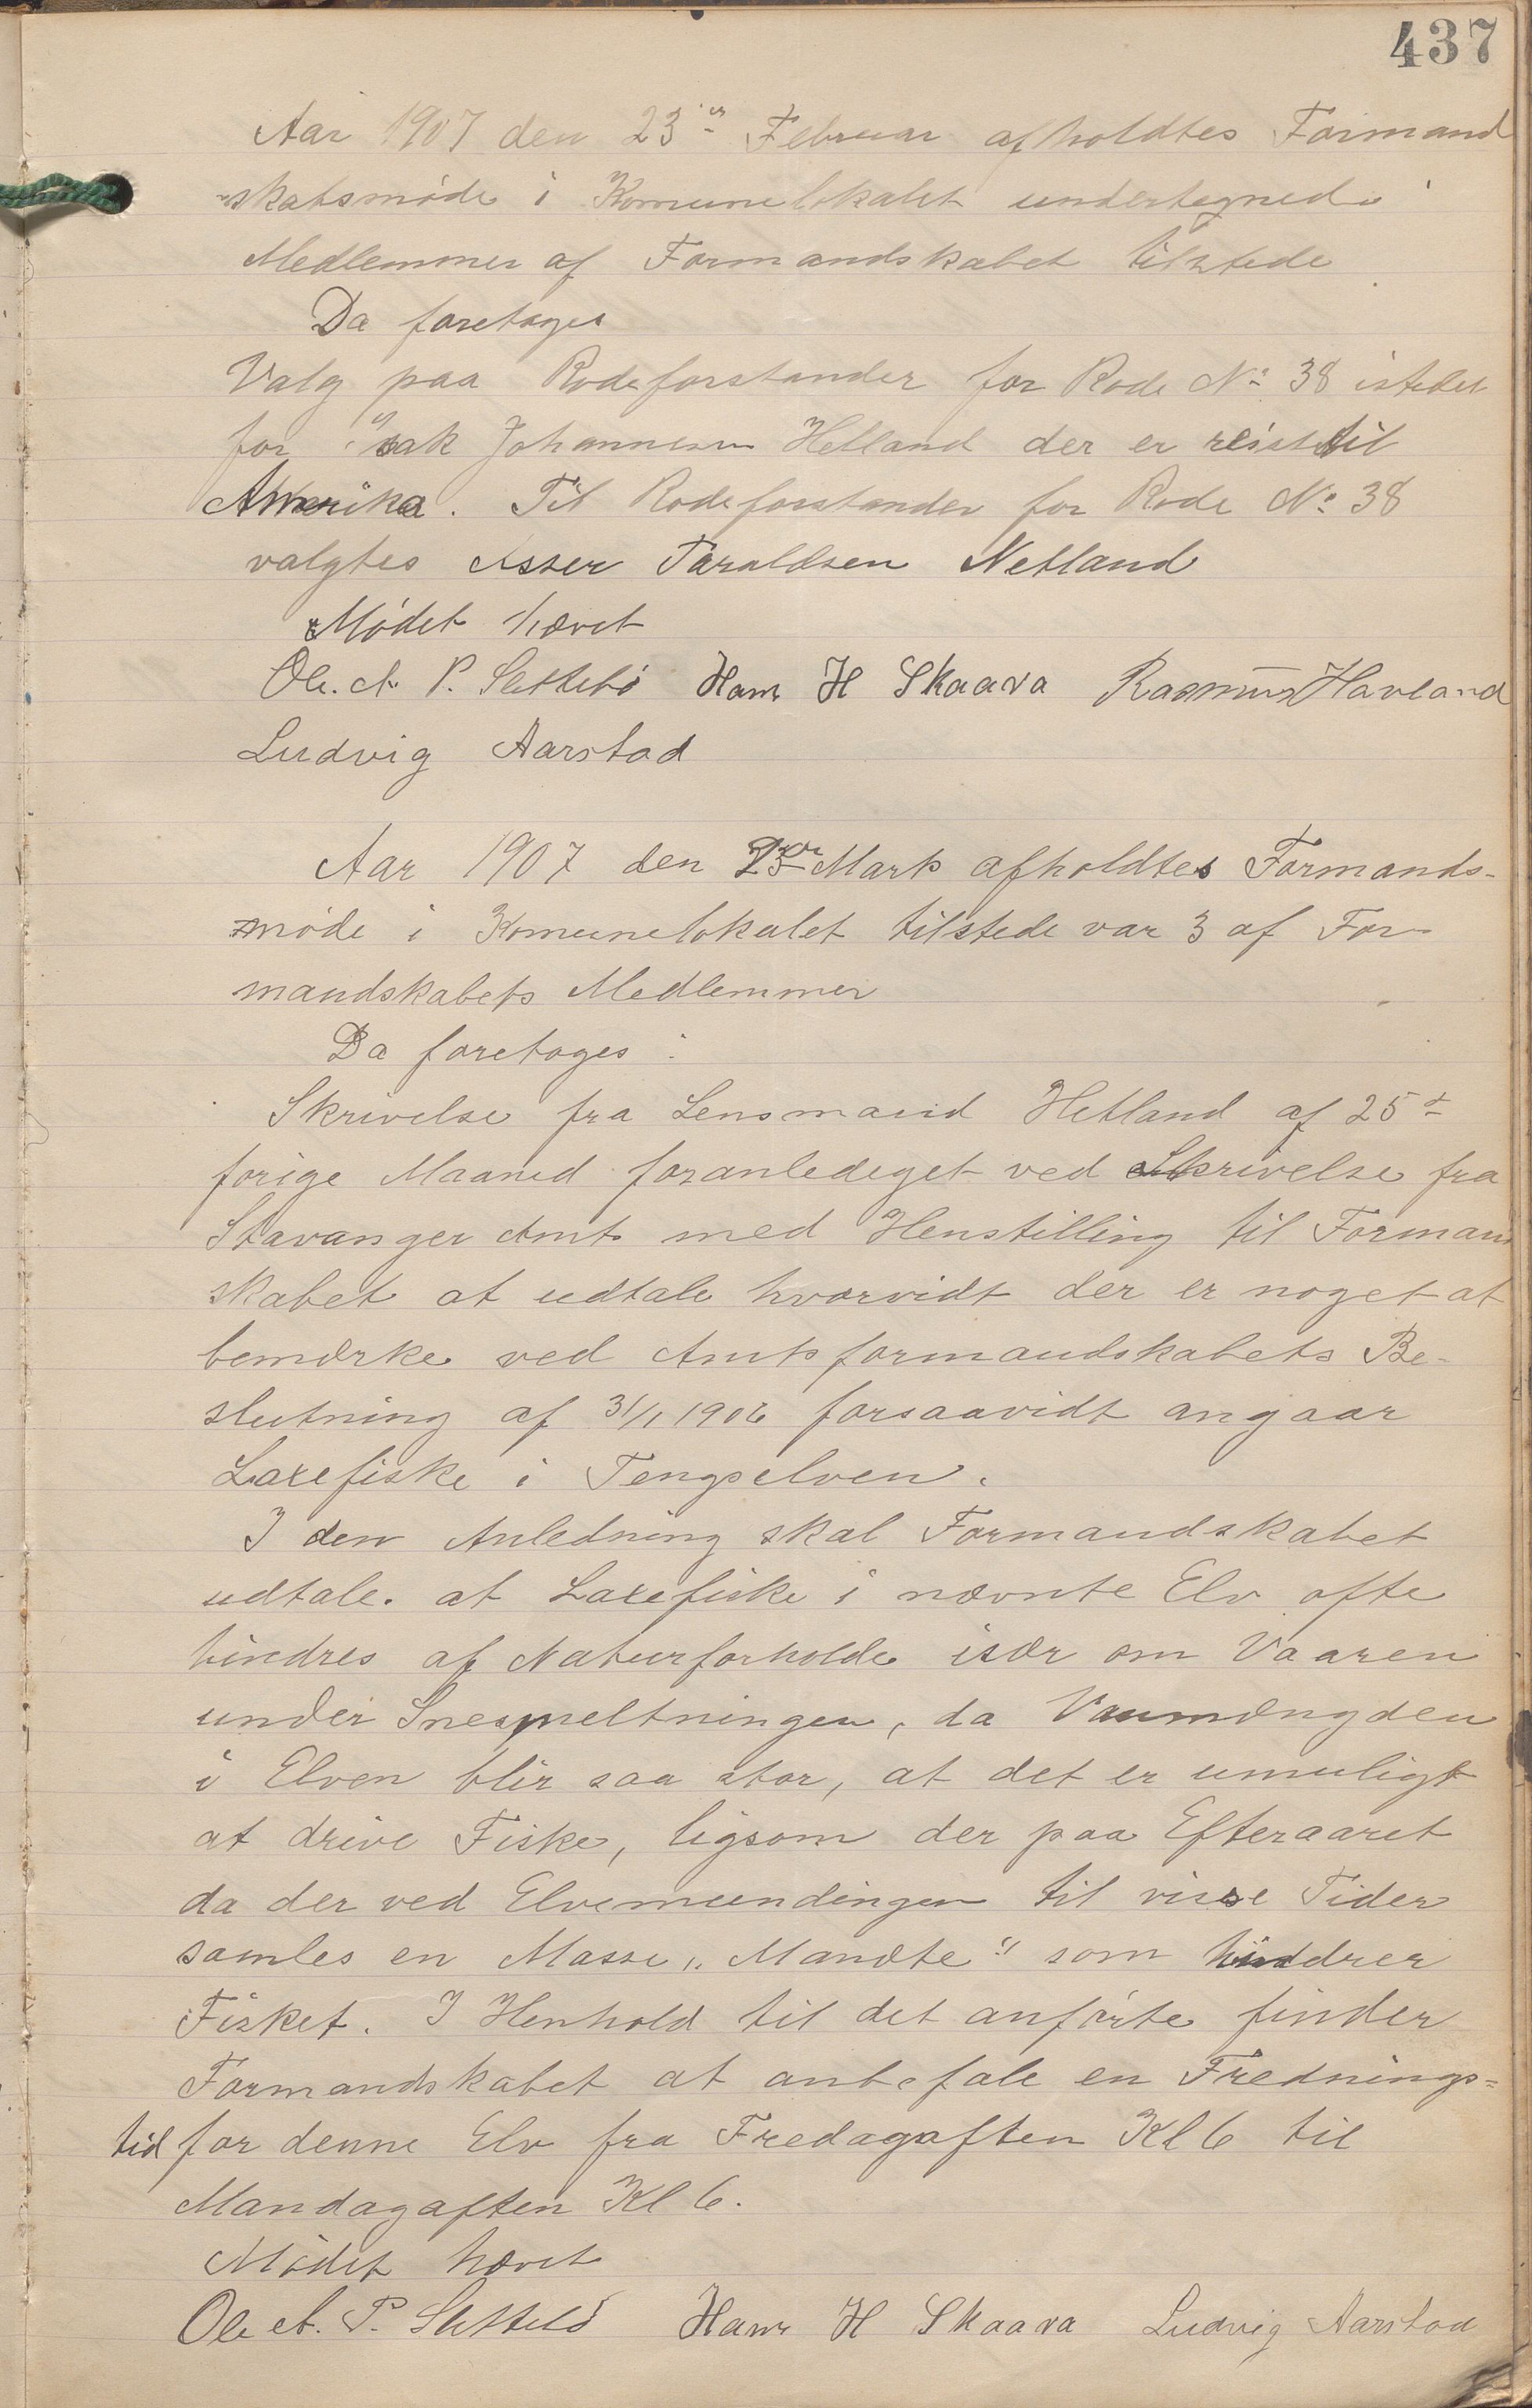 437
Aar 1907 den 23de Februar afholdtes Formand
skabsmøde i Komunelokalet undertegnede
Medlemmer af Formandskabet tilstede
Da foretoges
Valg paa Rodeforstander for Rode No 38 istedet
for Isak Johannesen Hetland der er reist til
Amerika. Til Rodeforstander for Rode No 38
valgtes Asser Taraldsen Netland
Mødet hævet
Ole A. P. Slettebø Hans H Skaava Rasmus Havland
Ludvig Aarstad
Aar 1907 den Marts afholdtes Formands-
møde i Komunelokalet tilstede var 3 af For-
mandskabets Medlemmer
Da foretoges:
Skrivelse fra Lensmand Hetland af 25de
forige Maaned foranlediget ved Skrivelse fra
Stavanger Amt med Henstilling til Formand
skabet at udtale hvorvidt der er noget at
bemærke ved Amtsformandskabets Be-
slutning af 31/1 1906 forsaavidt angaar
Laxefiske i Tengselven.
I den Anledning skal Formandskabet
udtale. at Laxefiske i nævnte Elv ofte
hindres af Naturforholde især om Vaaren
under Snesmeltningen, da Vanmængden
i Elven blir saa stor, at det er umuligt
at drive Fiske, ligsom der paa Efteraaret
da der ved Elvemundingen til visse Tider
samles en Masse „Mandte" som hindrer
Fisket. I Henhold til det anførte finder
Formandskabet at anbefale en Frednings-
tid for denne Elv fra Fredagaften Kl 6 til
Mandagaften Kl 6.
Mødet hævet
Ole A. P. Slettebø Hans H Skaava Ludvig Aarstad